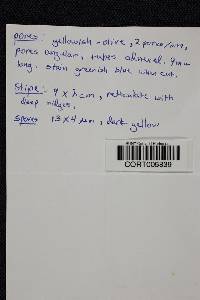 pores: yellowish-olive, 2 pores/mm,
pores angular, tubes adnexed, 9mm
long. stain greenish blue when cut.
Stipe: 9 x 2 cm, reticulate with
deep ridges,
Spores 13 x 4 µm, dark yellow
CORT006839